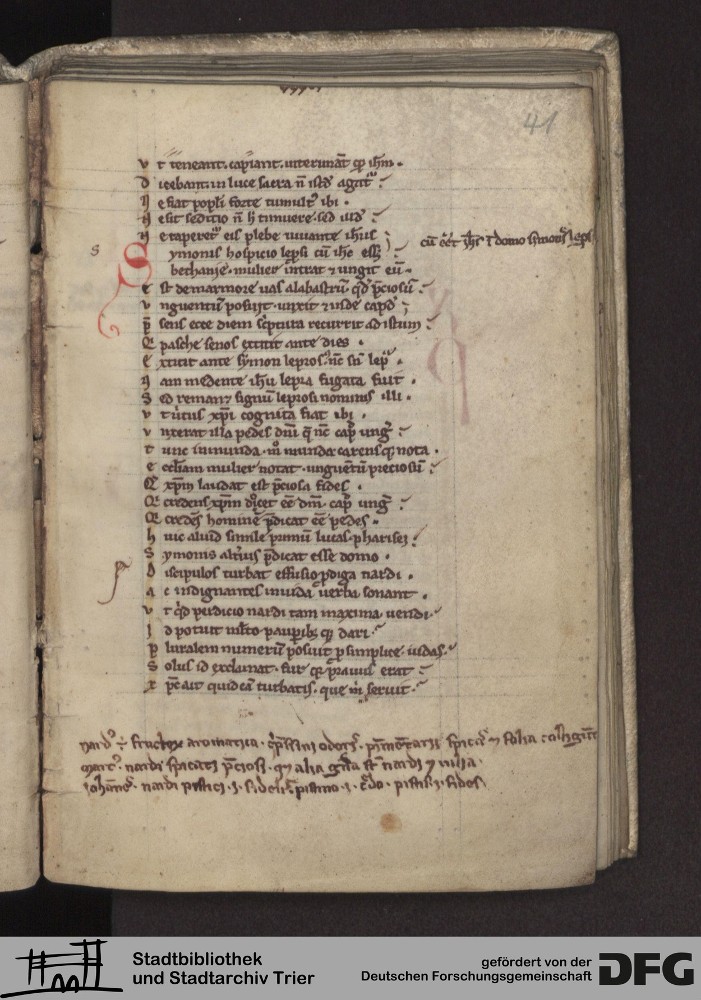 41
v t teneant. capiant. interimāt q̄ ihm.
d icebant. in luce sacra n̄
N e fiat popl̓i forte tumult᷒ ibi.
N e sit seditio n̄ h̄ timuere. sed
N e raperet᷒ eis plebe iuuante ihus
s
S ymonis hospicio lepsi cū iħo
cū ēēt ihs ī domo symonis lepsi
bethanie. mulier intrat ⁊ ungit eū.
e st de marmore uas alabastrū. qd̓ p̄ciosū
v nguentū posuit. unxit ⁊ inde capd̓
p̄ sens ecce diem sc̓ptura recurrit ad istum
Q pasche senos extitit ante dies.
E xtitit ante symon lepros᷒. nc̄
N am medente ihu lepra fugata fuit.
S ed remanꝫ signū leprosi nominis illi.
v t uirtus xpi cognita fiat ibi.
v nxerat illa pedes dnī q̄ nc̄ cap᷒ ungͭ
t unc inmunda. m̊ munda carensq nota.
e ccl̓iam mulier notat. unguentū preciosū
Q xpm laudat est p̄ciosa fides.
Q credens xpm d̓icet eē dm̄. cap᷒ ungͭ
Q credēs hominē p̄dicat eē pedes.
h uic aliud simile primū lucas. pharisei
S ymonis alt̓ius p̄dicat esse domo.
D iscipulos turbat effusio p̄diga nardi.
a c indignantes inuida uerba sonant.
v t qd̓ perdicio nardi tam maxima. uendi.
I d potuit. multo paup̄ibꝫ q dari.
p luralem numerū posuit p̱ simplice. iudas.
S olus id exclamat. fur q prauus erat
x p̄c ait quid eā turbatis. que m̓ seruit.
nard᷒ ÷ frutex aromatica. odoris. pigmentarii spicas ⁊ folia colligūt
marc᷒. nardi spicati p̄ciosi. nardi
ioħannes. nardi pistici. i. fidelis. i. c̓do. pistis. i. fides.
Stadtbibliothek
und Stadtarchiv Trier
gefördert von der
Deutschen Forschungsgemeinschaft
DFG